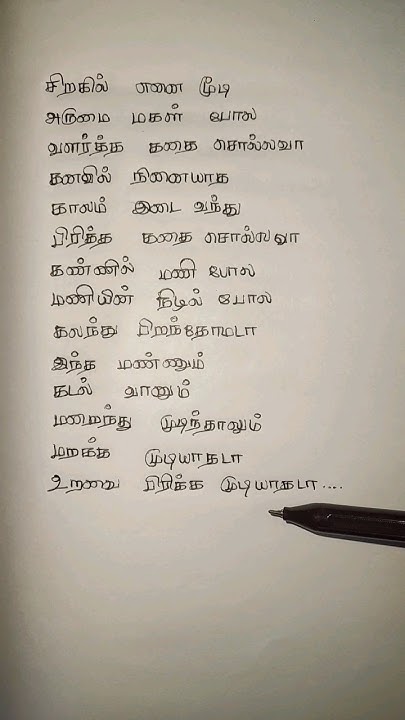 சிறகில் எனை மூடி
அருமை மகள் போல
வளர்த்த கதை சொல்லவா
கனவில் நினையாத
காலம் இடை வந்து
பிரித்த கதை சொல்லவா
கண்ணில் மணி போல
மணியின் நிழல் போல
கலந்து பிறந்தோமடா
இந்த மண்ணும்
கடல் வானும்
மறைந்து முடிந்தாலும்
மறக்க முடியாதடா
உறவை பிரிக்க முடியாதடா....